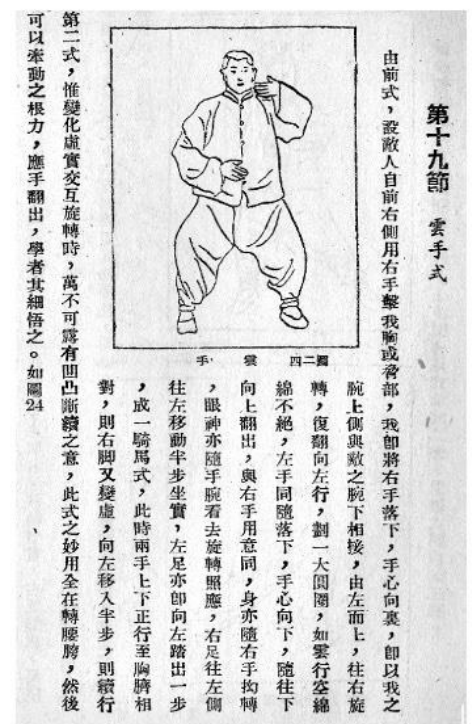 第十九節 雲手式
由前式，設敵人自前右側用右手擊我胸或脅部，我卽將右手落下，手心向裏，卽以我之
腕上側與敵之腕下相接，由左而上，往右旋
轉，復翻向左行，劃一大圓圈，如雲行空綿
綿不絕，左手同隨落下，手心向下，隨往下
向上翻出，與右手用意同，身亦隨右手拗轉
，眼神亦隨手腕看去旋轉照應，右足往左側
往左移動半步坐實，左足亦卽向左踏出一步
，成一騎馬式，此時兩手上下正行至胸臍相
對，則右脚又變虛，向左移入半步，則續行
圖二四 雲手
第二式，惟變化虛實交互旋轉時，萬不可露有凹凸斷續之意，此式之妙用全在轉腰胯，然後
可以牽動之根力，應手翻出，學者其細悟之。如圖24